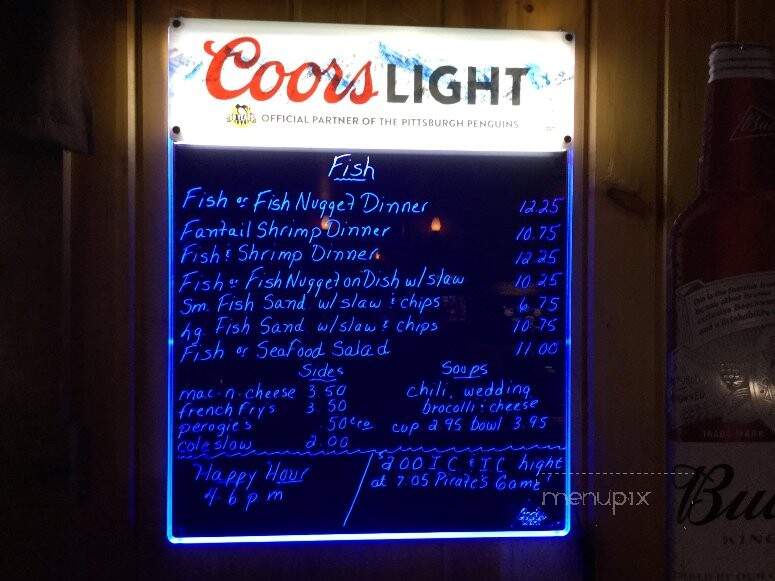 Coors LIGHT
OFFICIAL PARTNER OF THE PITTSBURGH PENGUINS
Fish
Fish or Fish Nugget Dinner 12.25
Fantail Shrimp Dinner 10.75
Fish & Shrimp Dinner 12.25
Fish or Fish Nugget on Dish w/slaw 10.25
Sm. Fish Sand w/slaw & chips 6.75
Lg. Fish Sand w/slaw & chips 10.75
Fish or Seafood Salad 11.00
Sides
mac-n-cheese 3.50
french frys 3.50
perogie's .50 ea
coleslaw 2.00
Soups
chili, wedding
brocolli & cheese
cup 2.95 bowl 3.95
Happy Hour
4-6pm
2.00 IC & IC Light
at 7:05 Pirate's Game
menupix
TRADE MARK
KING